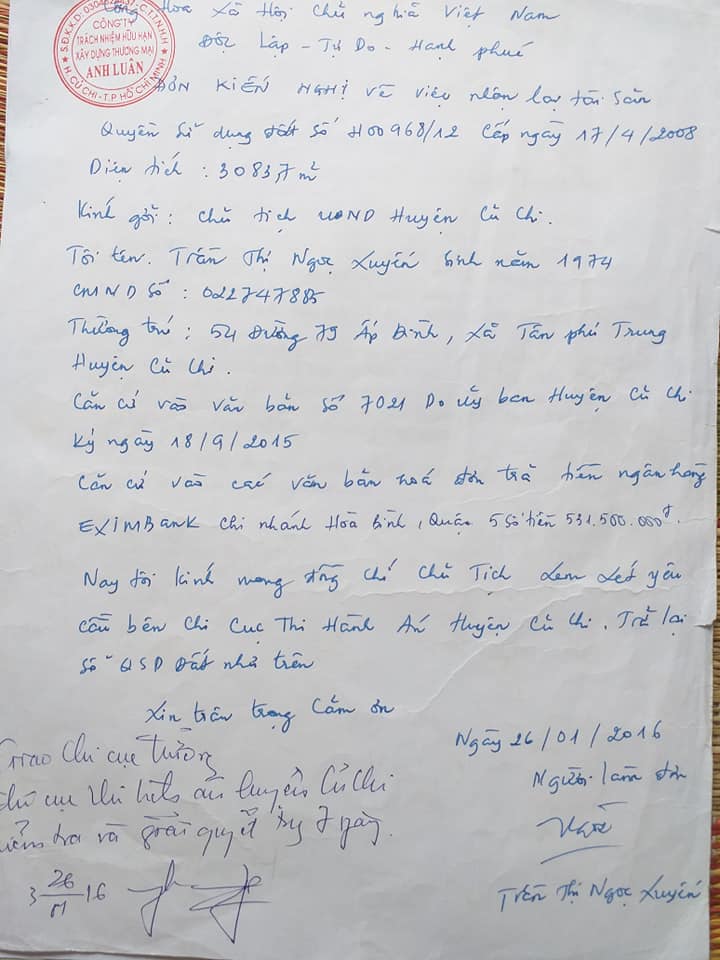 Cộng Hòa Xã Hội Chủ nghĩa Việt Nam
Độc Lập - Tự Do - Hạnh phúc
S.Đ.K.K.D: C.T.T.N.H.H
CÔNG TY
TRÁCH NHIỆM HỮU HẠN
XÂY DỰNG THƯƠNG MẠI
ANH LUÂN
H. CỦ CHI - T.P HỒ CHÍ MINH
ĐƠN KIẾN NGHỊ về việc nhận lại tài sản
Quyền sử dụng đất số H00968/12 cấp ngày 17/4/2008
Diện tích : 3083,7m²
Kính gởi : Chủ tịch UBND Huyện Củ Chi.
Tôi tên. Trần Thị Ngọc Xuyến sinh năm 1974
CMND số : 022747885
Thường trú : 54 Đường 79 Ấp Đình, Xã Tân phú Trung
Huyện Củ Chi.
Căn cứ vào văn bản số 7021 Do ủy ban Huyện Củ Chi
Ký ngày 18/9/2015
Căn cứ vào các văn bản hoá đơn trả tiền ngân hàng
EXIMBANK Chi nhánh Hoà Bình, Quận 5 số tiền 531.500.000đ.
Nay tôi kính mong đồng chí Chủ Tịch xem xét yêu
cầu bên Chi Cục Thi Hành Án Huyện Củ Chi. Trả lại
sổ QSD Đất như trên
Xin trân trọng Cảm ơn
Ngày 26/01/2016
Người làm đơn
Trần Thị Ngọc Xuyến
Giao Chi cục trưởng
chi cục thi hành án huyện Củ Chi
kiểm tra và giải quyết 7 ngày.
26
01 16